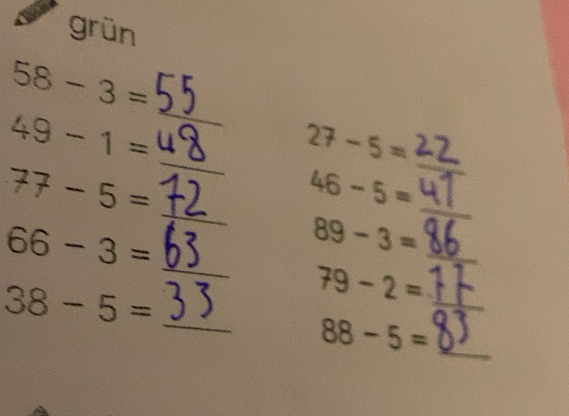 grün
58 - 3 = 55
49 - 1 = 48
77 - 5 = 72
66 - 3 = 63
38 - 5 = 33
27 - 5 = 22
46 - 5 = 41
89 - 3 = 86
79 - 2 = 77
88 - 5 = 83